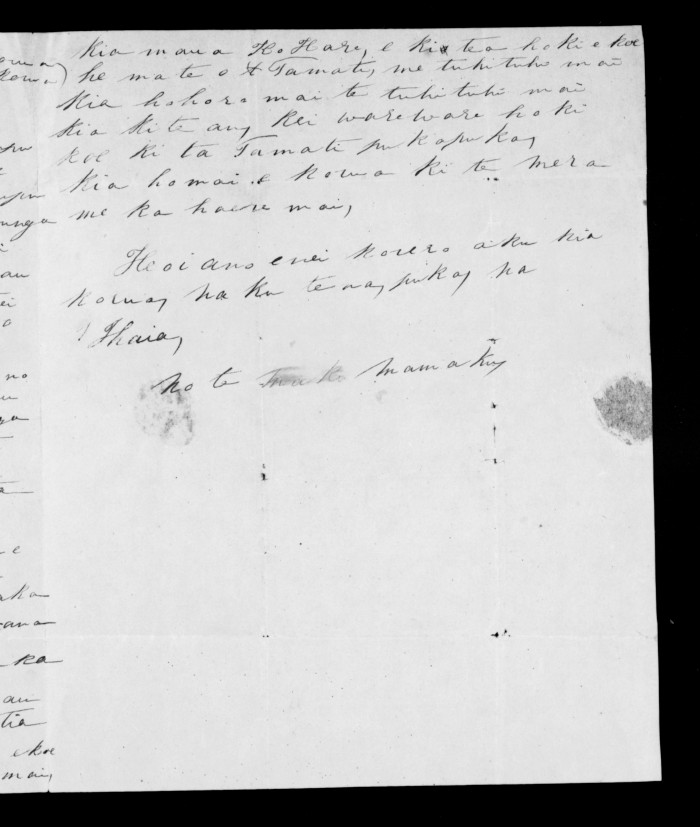 kia maua Ko Hare, e kitea hoki e koe
he mate o Tamati, me tuhituhi mai
kia hohoro mai te tuhituhi mai
kia kite au, kei wareware hoki
koe ki ta Tamati pukapuka,
kia homai e korua ki te mera
me ka haere mai,
Heoi ano enei korero aku kia
korua, na ku tena, puka, na
Ihaia,
No te Mamaku,
ei
no
ta
e
aka
ana
ka
au
tia
ekoe
mai,